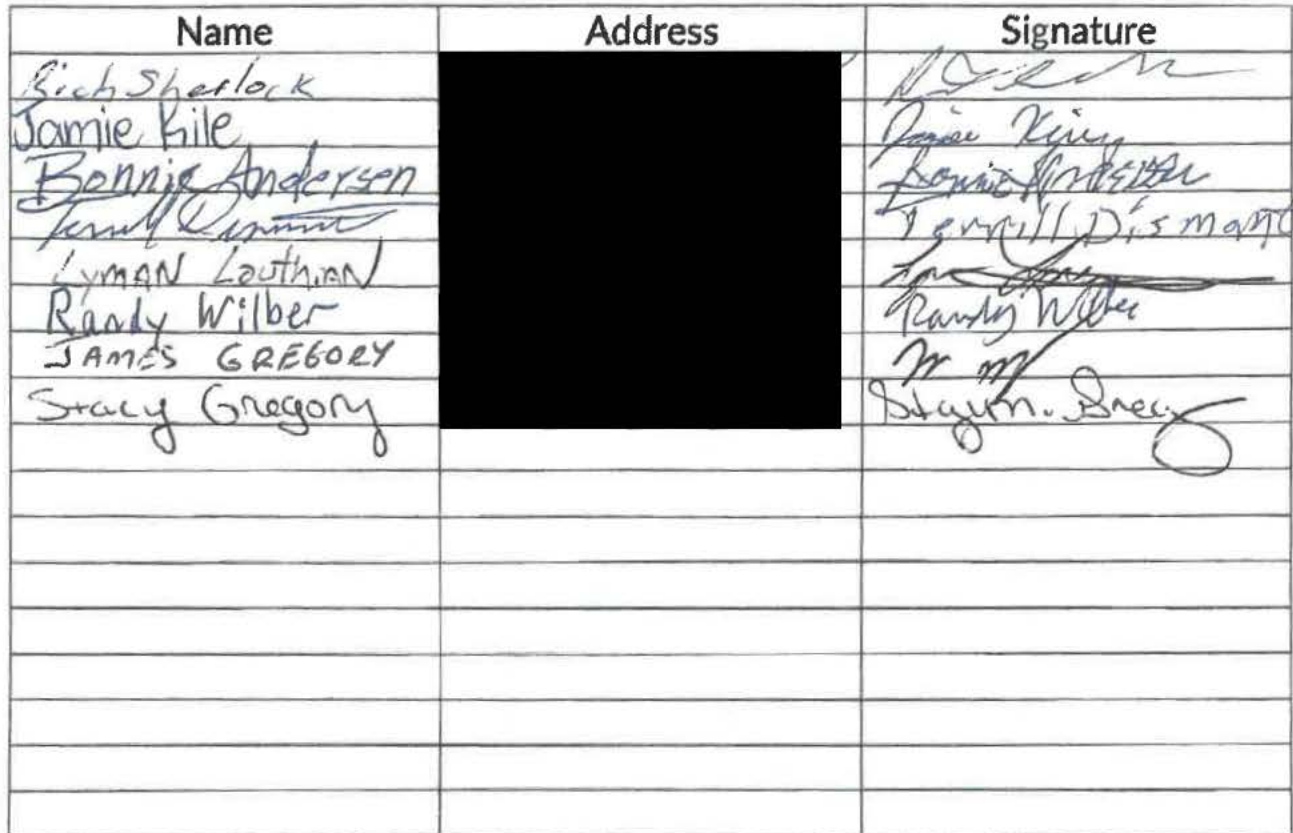 Name Address Signature
Rich Sherlock
Jamie Kile
Bonnie Andersen Bonnie Andersen
Terrill Dismant
Lyman Louthian
Randy Wilber Randy Wilber
JAMES GREGORY
Stacy Gregory Stacy M. Greg